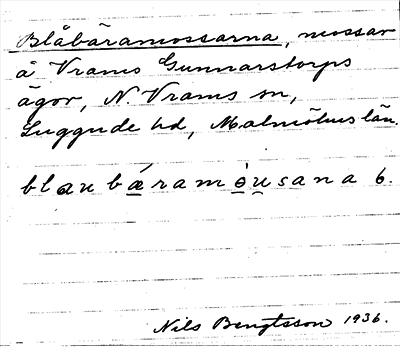 Blåbäramossarna, mossar
å Vrams Gunnarstorps
ägor, N. Vrams sn,
Luggude hd, Malmöhus län.
blau bá̱ramò̱u̯sana 6.
Nils Bengtsson 1936.